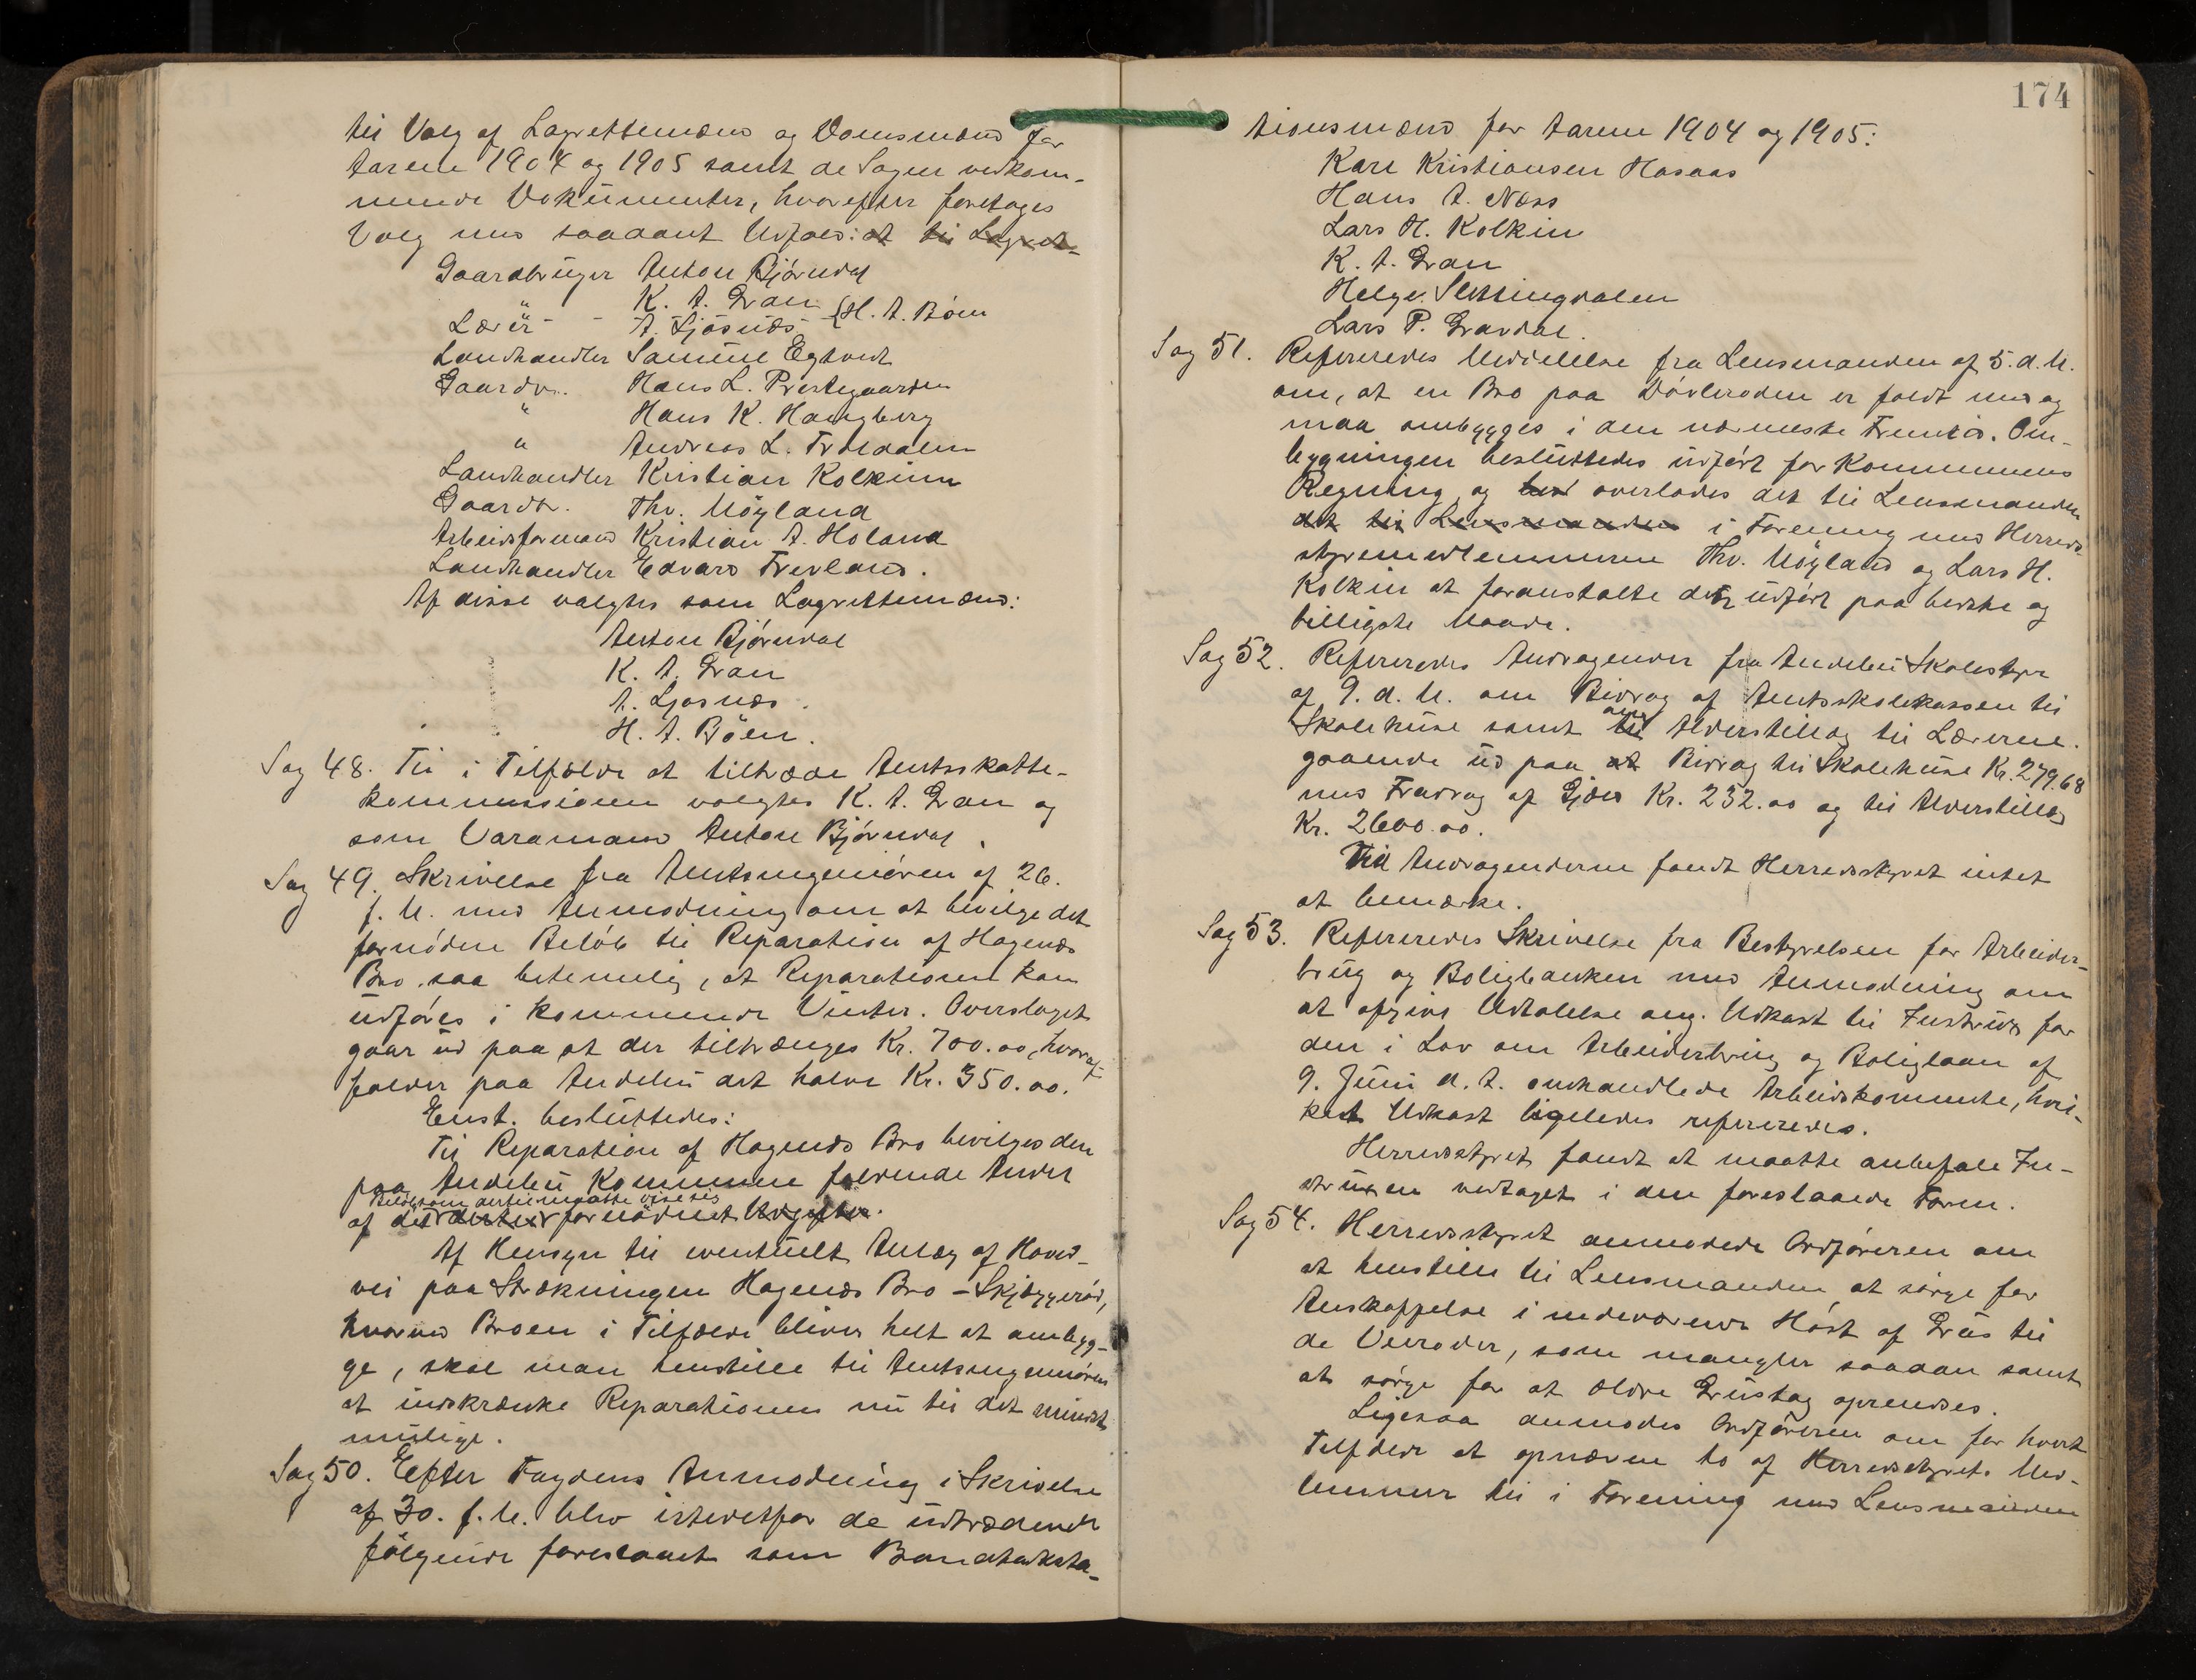 til Valg af Lagrettemænd og Domsmænd for
Aarene 1904 og 1905 samt de Sagen vedkom-
mende Dokumenter, hvorefter foretoges
Valg med saadant Udfald: at til Lagret-
Gaardbruger Anton Bjørndal
" K. A. Gran
Lærer A. Ljosnæs H. A. Bøen
Landhandler Samuel Egtvedt
Gaardbr. Hans L. Prestegaarden
" Hans K. Haugberg
" Andreas L. Troldalen
Landhandler Kristian Kolkinn
Gaardbr. Thv. Møyland
Arbeidsformand Kristian A. Holand
Landhandler Edvard Trevland.
Af disse valgtes som Lagrettemænd:
Anton Bjørndal
K. A. Gran
A. Ljosnæs.
H. A. Bøen.
Sag 48. Til i Tilfælde at tiltræde Amtsskatte-
kommissionen valgtes K. A. Gran og
som Varamand Anton Bjørndal.
Sag 49. Skrivelse fra Amtsingeniøren af 26.
f. M. med Anmodning om at bevilge det
fornødne Beløb til Reparation af Hagenæs
Bro saa betimelig, at Reparationen kan
udføres i kommende Vinter. Overslaget
gaar ud paa at der tiltrænges Kr. 700.00, hvoraf
falder paa Andebu det halve Kr. 350.00.
Enst. besluttedes:
Til Reparation af Hagenæs Bro bevilges den
paa Andebu Kommune faldende Andel
Beløb som dertil maatte vise sig
af det dertil fornødent Udgifter.
Af Hensyn til eventuelt Anlæg af Hoved-
vei paa Strækningen Hagenæs Bro – Skjæggerød,
hvorved Broen i Tilfælde bliver helt at ombyg-
ge, skal man henstille til Amtsingeniøren
at indskrænke Reparationen nu til det mindst
mulige.
Sag 50. Efter Fogdens Anmodning i Skrivelse
af 30. f. M. blev istedetfor de udtrædende
følgende foreslaaet som Brandtaksta-
174
tionsmænd for Aarene 1904 og 1905:
Karl Kristiansen Hasaas
Hans A. Næss
Lars H. Kolkin
K. A. Gran
Helge Slettingdalen
Lars P. Gravdal.
Sag 51. Refereredes Meddelelse fra Lensmanden af 5. d. M.
om, at en Bro paa Døvleroden er faldt ned og
maa ombygges i den nærmeste Fremtid. Om-
bygningen besluttedes udført for Kommunens
Regning, og overlodes det til Lensmanden
det til Lensmanden i Forening med Herreds-
styremedlemmerne Thv. Møyland og Lars H.
Kolkin at foranstalte den udført paa bedste og
billigste Maade.
Sag 52. Refereredes Andragender fra Andebu Skolestyre
af 9. d. M. om Bidrag af Amtsskolekassen til
Skolehuse samt til om Alderstillæg til Lærerne.
gaaende ud paa at Bidrag til Skolehuse Kr. 279.68
med Fradrag af Gjæld Kr. 232.00 og til Alderstillæg
Kr. 2600.00.
Til Andragenderne fandt Herredsstyret intet
at bemærke.
Sag 53. Refereredes Skrivelse fra Bestyrelsen for Arbeider-
brug og Boligbanken med Anmodning om
at afgive Udtalelse ang. Udkast til Instrux for
den i Lov om Arbeiderbrug og Boliglaan af
9. Juni d. A. omhandlede Arbeidskommite, hvil-
ket Udkast ligeledes refereredes.
Herredsstyret fandt at maatte anbefale In-
struxen vedtaget i den foreslaaede Form.
Sag 54. Herredsstyret anmodede Ordføreren om
at henstille til Lensmanden at sørge for
Anskaffelse i indeværende Høst af Grus til
de Veiroder, som mangler saadan samt
at sørge for at ældre Grustag oprendses.
Ligesaa anmodes Ordføreren om for hvert
Tilfælde at opnævne to af Herredsstyrets Med-
lemmer til i Forening med Lensmanden